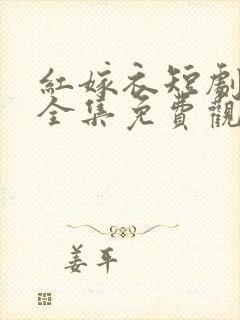 紅嫁衣短劇
全集免費觀
姜平